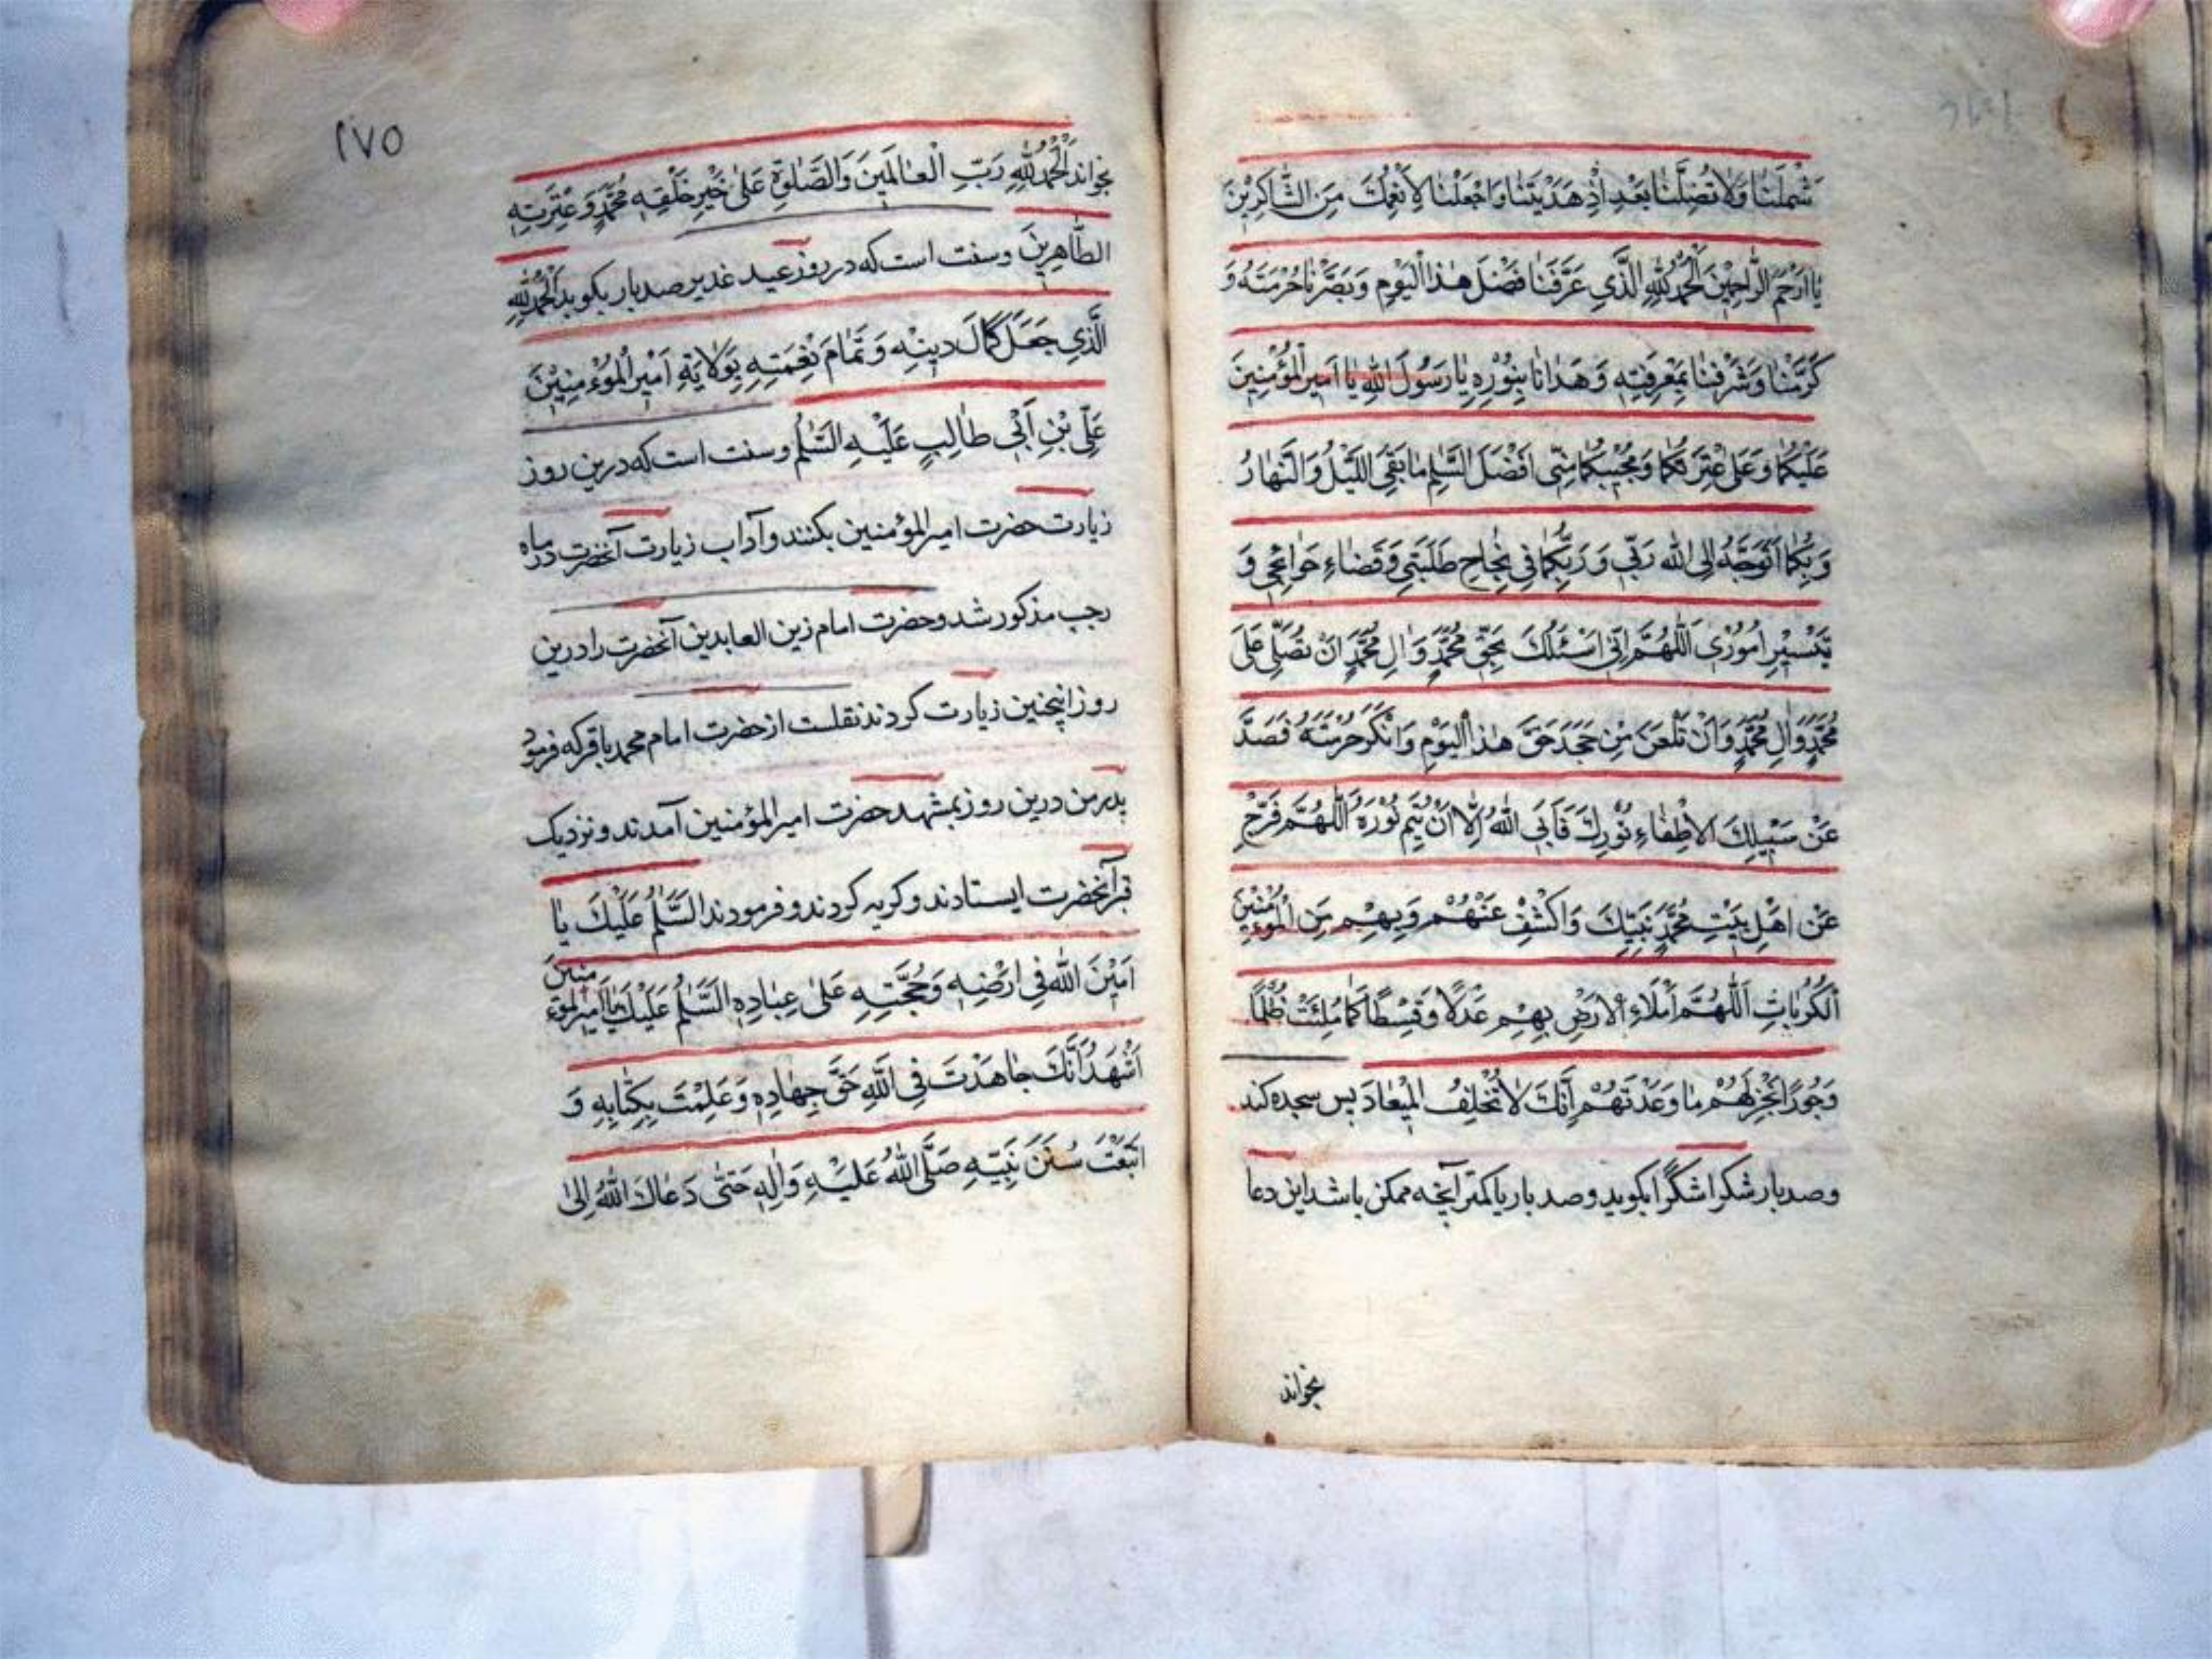 شَمْلَنَا وَلَا تُضِلَّنَا بَعْدَ اِذْ هَدَيْتَنَا وَاجْعَلْنَا لِاَنْعُمِكَ مِنَ الشَّاكِرِيْنَ
يَا اَرْحَمَ الرَّاحِمِيْنَ اَلْحَمْدُ لِلّٰهِ الَّذِي عَرَّفَنَا فَضْلَ هٰذَا الْيَوْمِ وَبَصَّرَنَا حُرْمَتَهُ وَ
كَرَّمَنَا وَشَرَّفَنَا بِمَعْرِفَتِهِ وَهَدَانَا بِنُوْرِهِ يَا رَسُوْلَ اللّٰهِ يَا اَمِيْرَ الْمُؤْمِنِيْنَ
عَلَيْكُمَا وَعَلىٰ عِتْرَتِكُمَا وَمُحِبِّيْكُمَا مِنِّى اَفْضَلَ السَّلٰمِ مَا بَقِىَ اللَّيْلُ وَالنَّهَارُ
وَبِكُمَا اَتَوَجَّهُ اِلَى اللّٰهِ رَبِّى وَرَبِّكُمَا فِى نَجَاحِ طَلِبَتِى وَقَضَاءِ حَوَائِجِى وَ
تَيْسِيْرِ اُمُوْرِى اَللّٰهُمَّ اِنِّى اَسْئَلُكَ بِحَقِّ مُحَمَّدٍ وَالِ مُحَمَّدٍ اَنْ تُصَلِّىَ عَلىٰ
مُحَمَّدٍ وَالِ مُحَمَّدٍ وَاَنْ تَلْعَنَ مَنْ جَحَدَ حَقَّ هٰذَا الْيَوْمِ وَاَنْكَرَ حُرْمَتَهُ فَصَدَّ
عَنْ سَبِيْلِكَ لِاِطْفَاءِ نُوْرِكَ فَاَبَى اللّٰهُ اِلَّا اَنْ يُتِمَّ نُوْرَهُ اَللّٰهُمَّ فَرِّجْ
عَنْ اَهْلِ بَيْتِ مُحَمَّدٍ نَبِيِّكَ وَاكْشِفْ عَنْهُمْ وَبِهِمْ مِنَ الْمُؤْمِنِيْنَ
الْكُرُبَاتِ اَللّٰهُمَّ اَمْلَاءِ الْاَرْضَ بِهِمْ عَدْلًا وَقِسْطًا كَمَا مُلِئَتْ ظُلْمًا
وَجُوْرًا وَاَنْجِزْ لَهُمْ مَا وَعَدْتَهُمْ اِنَّكَ لَا تُخْلِفُ الْمِيْعَادَ پس سجده کند
وصدبار شکرا شکرًا بکوید وصدبار یا کمتر آنچه ممکن باشد این دعا
بخواند
٢٧٥
بخواند اَلْحَمْدُ لِلّٰهِ رَبِّ الْعَالَمِيْنَ وَالصَّلٰوةُ عَلىٰ خَيْرِ خَلْقِهِ مُحَمَّدٍ وَعِتْرَتِهِ
الطَّاهِرِيْنَ وسنت است که در روز عید غدیر صدبار بکوید اَلْحَمْدُ لِلّٰهِ
الَّذِي جَعَلَ كَمَالَ دِيْنِهِ وَتَمَامَ نِعْمَتِهِ بِوَلَايَةِ اَمِيْرِ الْمُؤْمِنِيْنَ
عَلِىِّ بْنِ اَبِى طَالِبٍ عَلَيْهِ السَّلٰمُ وسنت است که درین روز
زیارت حضرت امیرالمؤمنین بکنند و آداب زیارت آنحضرت در ماه
رجب مذکور شد وحضرت امام زین العابدین آنحضرت را درین
روز اینچنین زیارت کردند نقلست از حضرت امام محمد باقر که فرمود
پدر من درین روز بمشهد حضرت امیرالمؤمنین آمدند و نزدیک
قبر آنحضرت ایستادند وکریه کردند وفرمودند اَلسَّلٰمُ عَلَيْكَ يَا
اَمِيْنَ اللّٰهِ فِى اَرْضِهِ وَحُجَّتِهِ عَلىٰ عِبَادِهِ اَلسَّلٰمُ عَلَيْكَ يَا اَمِيْرَ الْمُؤْمِنِيْنَ
اَشْهَدُ اَنَّكَ جَاهَدْتَ فِى اللّٰهِ حَقَّ جِهَادِهِ وَعَلِمْتَ بِكِتَابِهِ وَ
اتَّبَعْتَ سُنَنَ نَبِيِّهِ صَلَّى اللّٰهُ عَلَيْهِ وَالِهِ حَتّٰى دَعَاكَ اللّٰهُ اِلىٰ